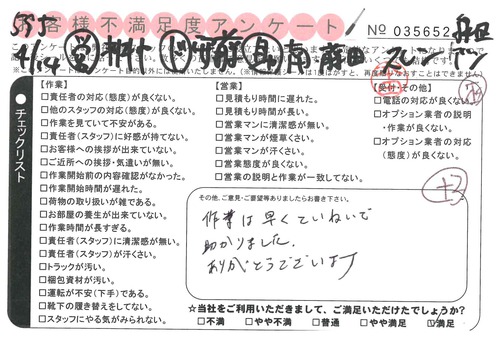 お客様不満足度アンケート
No 035652
4/14
チェックリスト
【作業】
□責任者の対応(態度)が良くない。
□他のスタッフの対応(態度)が良くない。
□作業を見ていて不安がある。
□責任者(スタッフ)に好感が持てない。
□お客様への挨拶が出来ていない。
□ご近所への挨拶・気遣いが無い。
□作業開始前の内容確認がなかった。
□作業開始時間が遅れた。
□荷物の取り扱いが雑である。
□お部屋の養生が出来ていない。
□作業時間が長すぎる。
□責任者(スタッフ)に清潔感が無い。
□責任者(スタッフ)が汗くさい。
□トラックが汚い。
□梱包資材が汚い。
□運転が不安(下手)である。
□靴下の履き替えをしてない。
□スタッフにやる気がみられない。
【営業】
□見積もり時間に遅れた。
□見積もり時間が長い。
□営業マンに清潔感が無い。
□営業マンが煙草くさい。
□営業マンが汗くさい。
□営業態度が良くない。
□営業の説明と作業が一致してない。
【受付・その他】
□電話の対応が良くない。
□オプション業者の説明
・作業が良くない。
□オプション業者の対応
(態度)が良くない。
その他、ご意見・ご要望等ありましたらお書き下さい。
作業は早くていねいで
助かりました。
ありがとうございます
☆当社をご利用いただきまして、ご満足いただけたでしょうか?
□不満 □やや不満 □普通 □やや満足 ☑満足